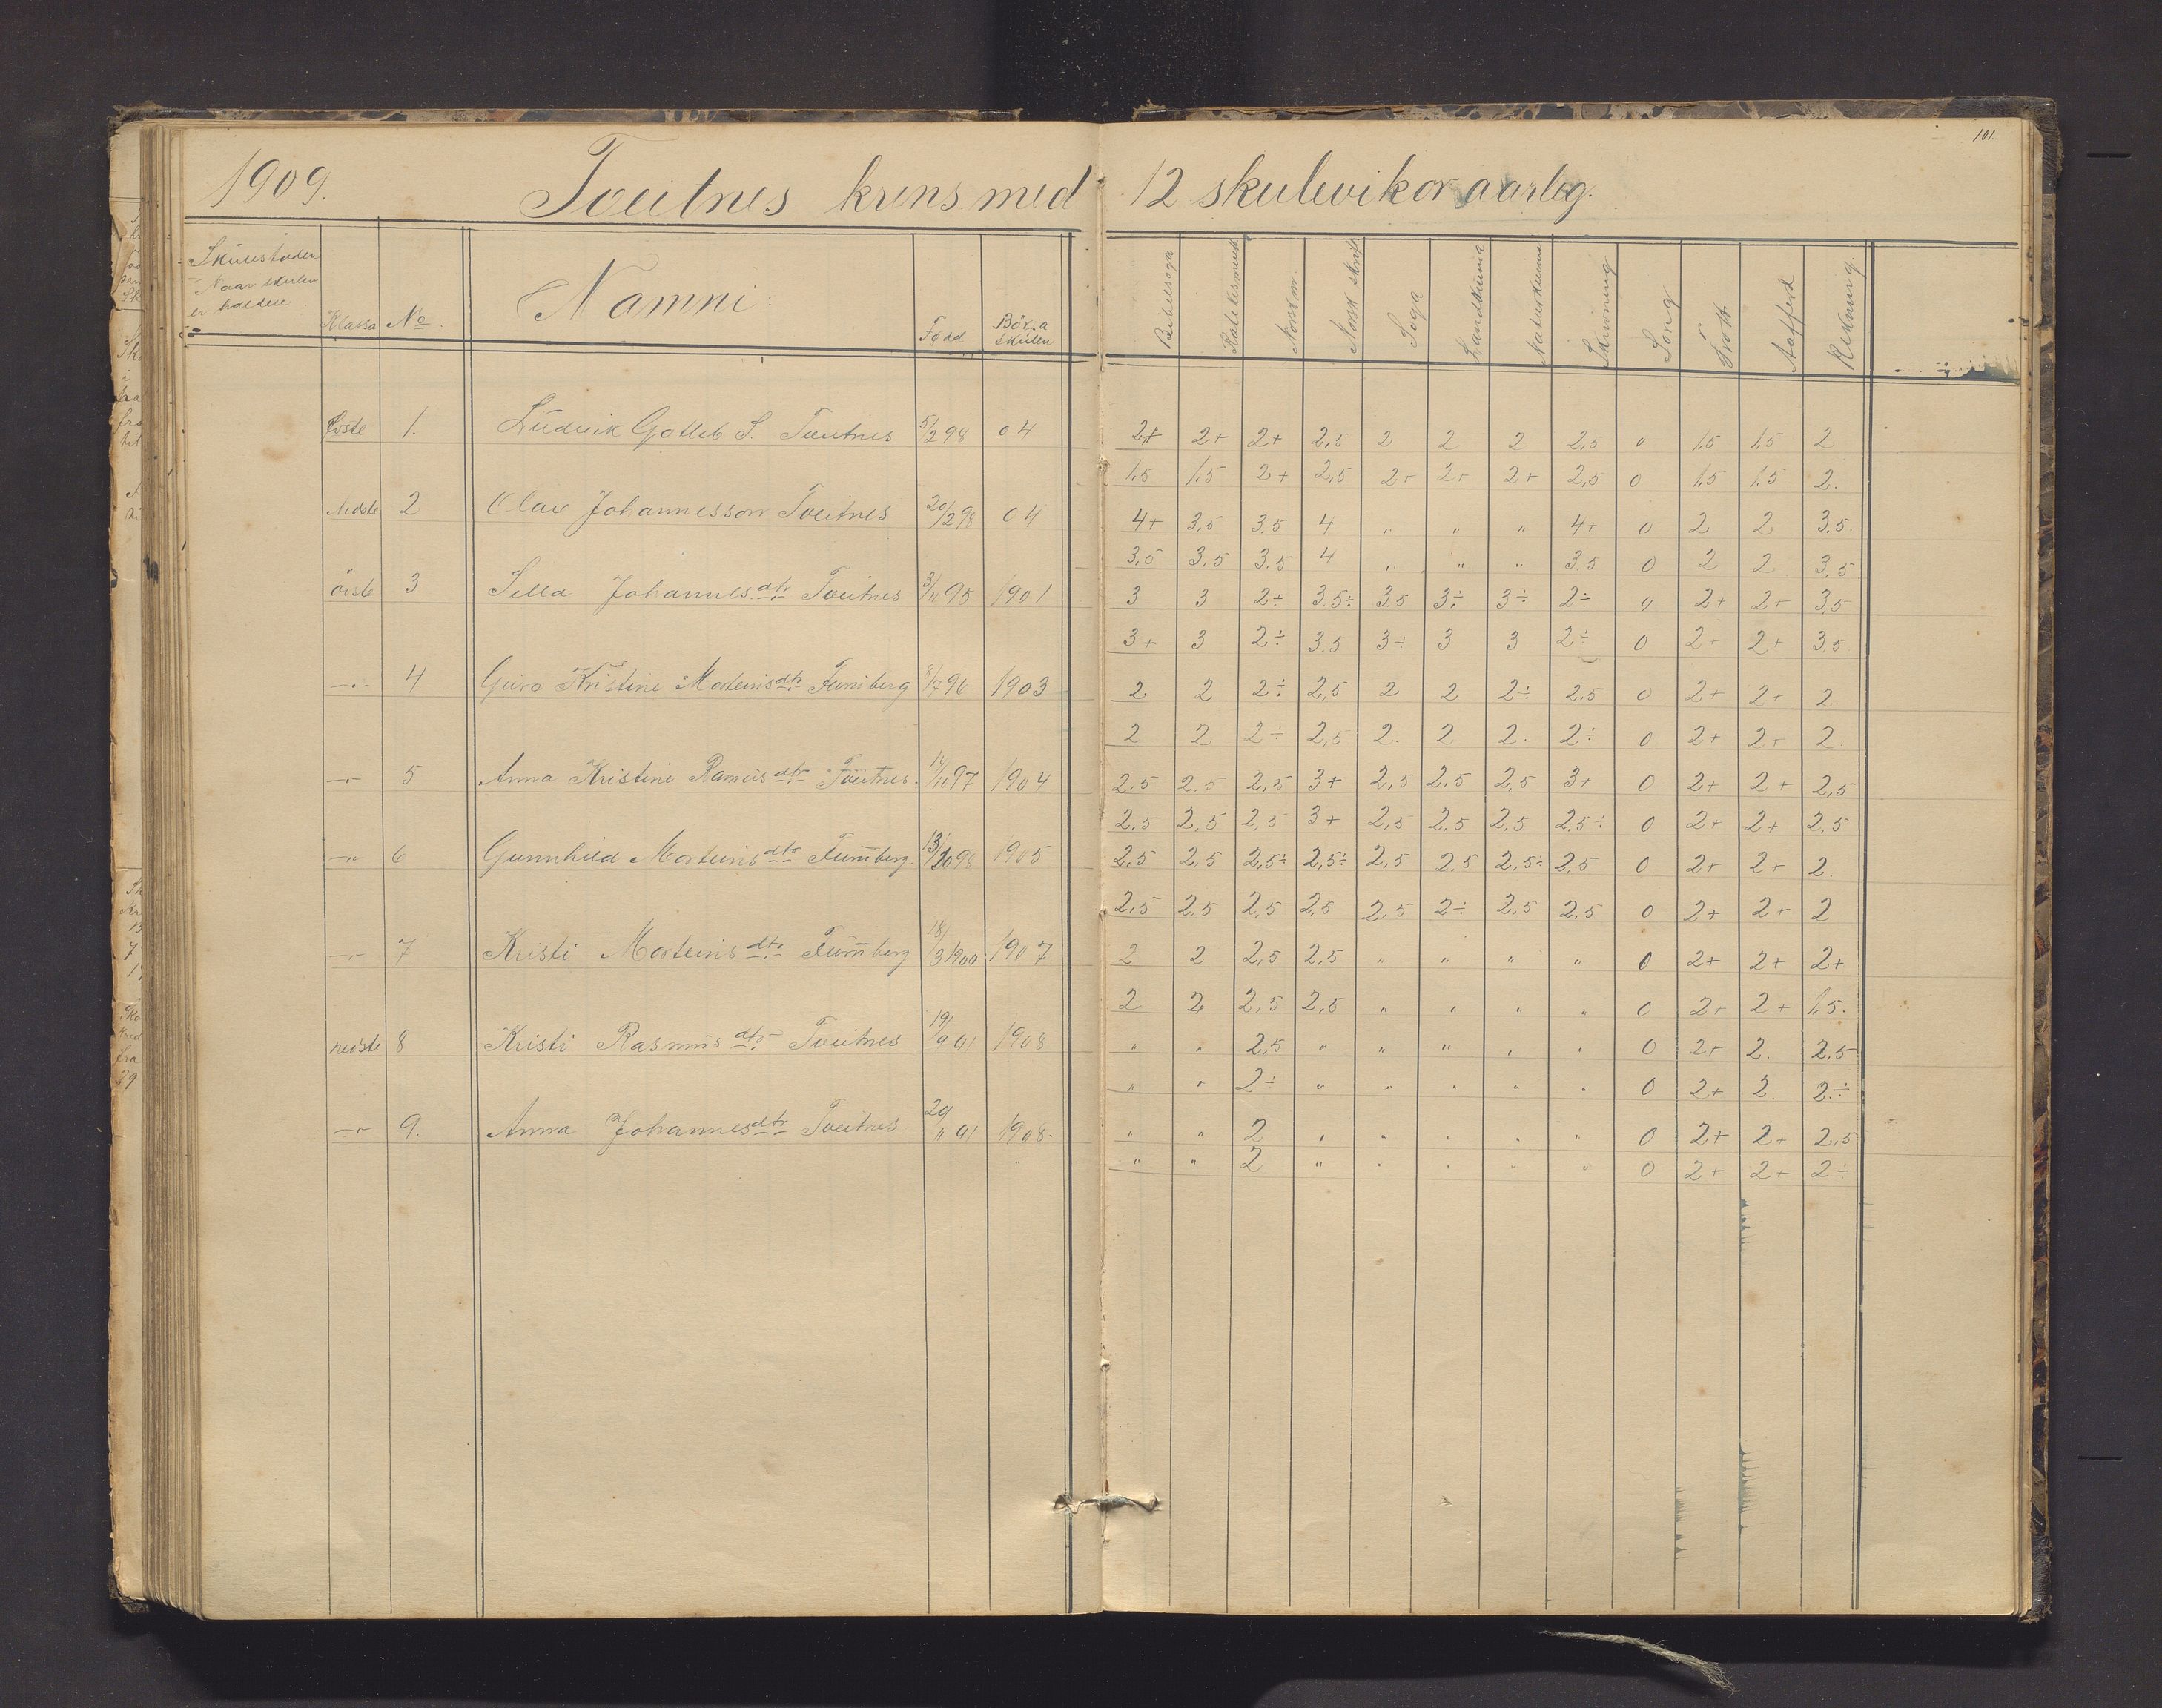 101.
1909. Tveitnes krins med 12 skulevikor aarleg.
Skulestaden
Naar skulen
er halden
Klassa No. Namni: Fødd Børja skulen Bibelsoga Katekismen Norsk m Norsk skrift Soga Landkunna Naturkunna Skrivning Song Idrott Aatferd Rekning.
øvste 1. Ludvik Gotleb S. Tveitnes 5/2 98 04 2+ 2+ 2+ 2,5 2 2 2 2,5 0 1,5 1,5 2
1,5 1,5 2+ 2,5 2+ 2+ 2+ 2,5 0 1,5 1,5 2.
Nedste 2 Olav Johannesson Tveitnes 20/2 98 04 4+ 3,5 3,5 4 " " " 4+ 0 2 2 3,5.
3,5 3,5 3,5 4 " " " 3,5 0 2 2 3,5
øvste 3 Sella Johannesdtr Tveitnes 3/11 95 1901 3 3 2÷ 3,5÷ 3,5 3÷ 3÷ 2÷ 0 2+ 2+ 3,5
3+ 3 2÷ 3,5 3÷ 3 3 2÷ 0 2+ 2+ 3,5
—"— 4 Guro Kristine Morteinsdtr Furuberg 8/7 96 1903 2 2 2÷ 2,5 2 2 2÷ 2,5 0 2+ 2+ 2
2 2 2÷ 2,5 2. 2 2. 2÷ 0 2+ 2+ 2.
—"— 5 Anna Kristine Ramusdtr Tveitnes. 14/10 97 1904 2,5 2,5 2,5 3+ 2,5 2,5 2,5 3+ 0 2+ 2+ 2,5
2,5 2,5 2,5 3+ 2,5 2,5 2,5 2,5÷ 0 2+ 2+ 2,5
—"— 6 Gunnhild Morteinsdtr Furuberg. 13/10 98 1905 2,5 2,5 2,5÷ 2,5÷ 2,5 2,5 2,5÷ 2,5 0 2+ 2+ 2.
2,5 2,5 2,5 2,5 2,5 2÷ 2,5 2,5 0 2+ 2+ 2
—"— 7 Kristi Morteinsdtr Furuberg 18/3 1900 1907 2 2 2,5 2,5 " " " " 0 2+ 2+ 2+
2 2 2,5 2,5 " " " " 0 2+ 2+ 1,5.
nedste 8 Kristi Rasmusdtr Tveitnes 19/9 01 1908 " " 2,5 " " " " " 0 2+ 2. 2,5
" " 2÷ " " " " " 0 2+ 2. 2÷
—"— 9. Anna Johannesdtr Tveitnes 29/11 01 1908. " " 2 " " " " " 0 2+ 2+ 2,5
" " 2 " " " " " 0 2+ 2+ 2÷